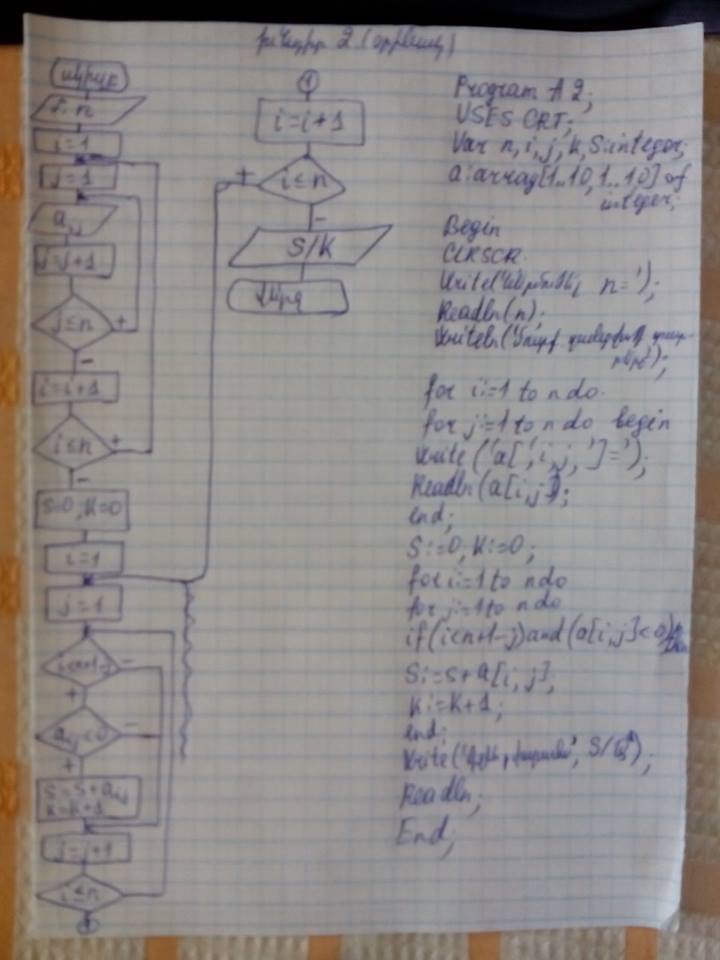 սկիզբ
n
i=1
j=1
a i,j
j=j+1
j≤n
+
-
i=i+1
i≤n
+
-
S=0; K=0
i=1
j=1
i<n+1-j
-
+
a i,j <0
-
+
S=S+a i,j
K=K+1
j=j+1
j≤n
1
1
i=i+1
+
i≤n
-
S/K
Program A2;
USES CRT;
Var n,i,j,k,S:integer;
a:array[1..10,1..10] of
integer;
Begin
CLRSCR
Write(' n=');
Readln(n);
Writeln('
for i:=1 to n do
for j:=1 to n do begin
Write('a[',i,j,']=');
Readln(a[i,j]);
end;
S:=0; K:=0;
for i:=1 to n do
for j:=1 to n do
if (i<n+1-j)and(a[i,j]<0) then
S:=s+a[i,j];
K:=K+1;
end;
Write(' ', S/
Readln;
End;